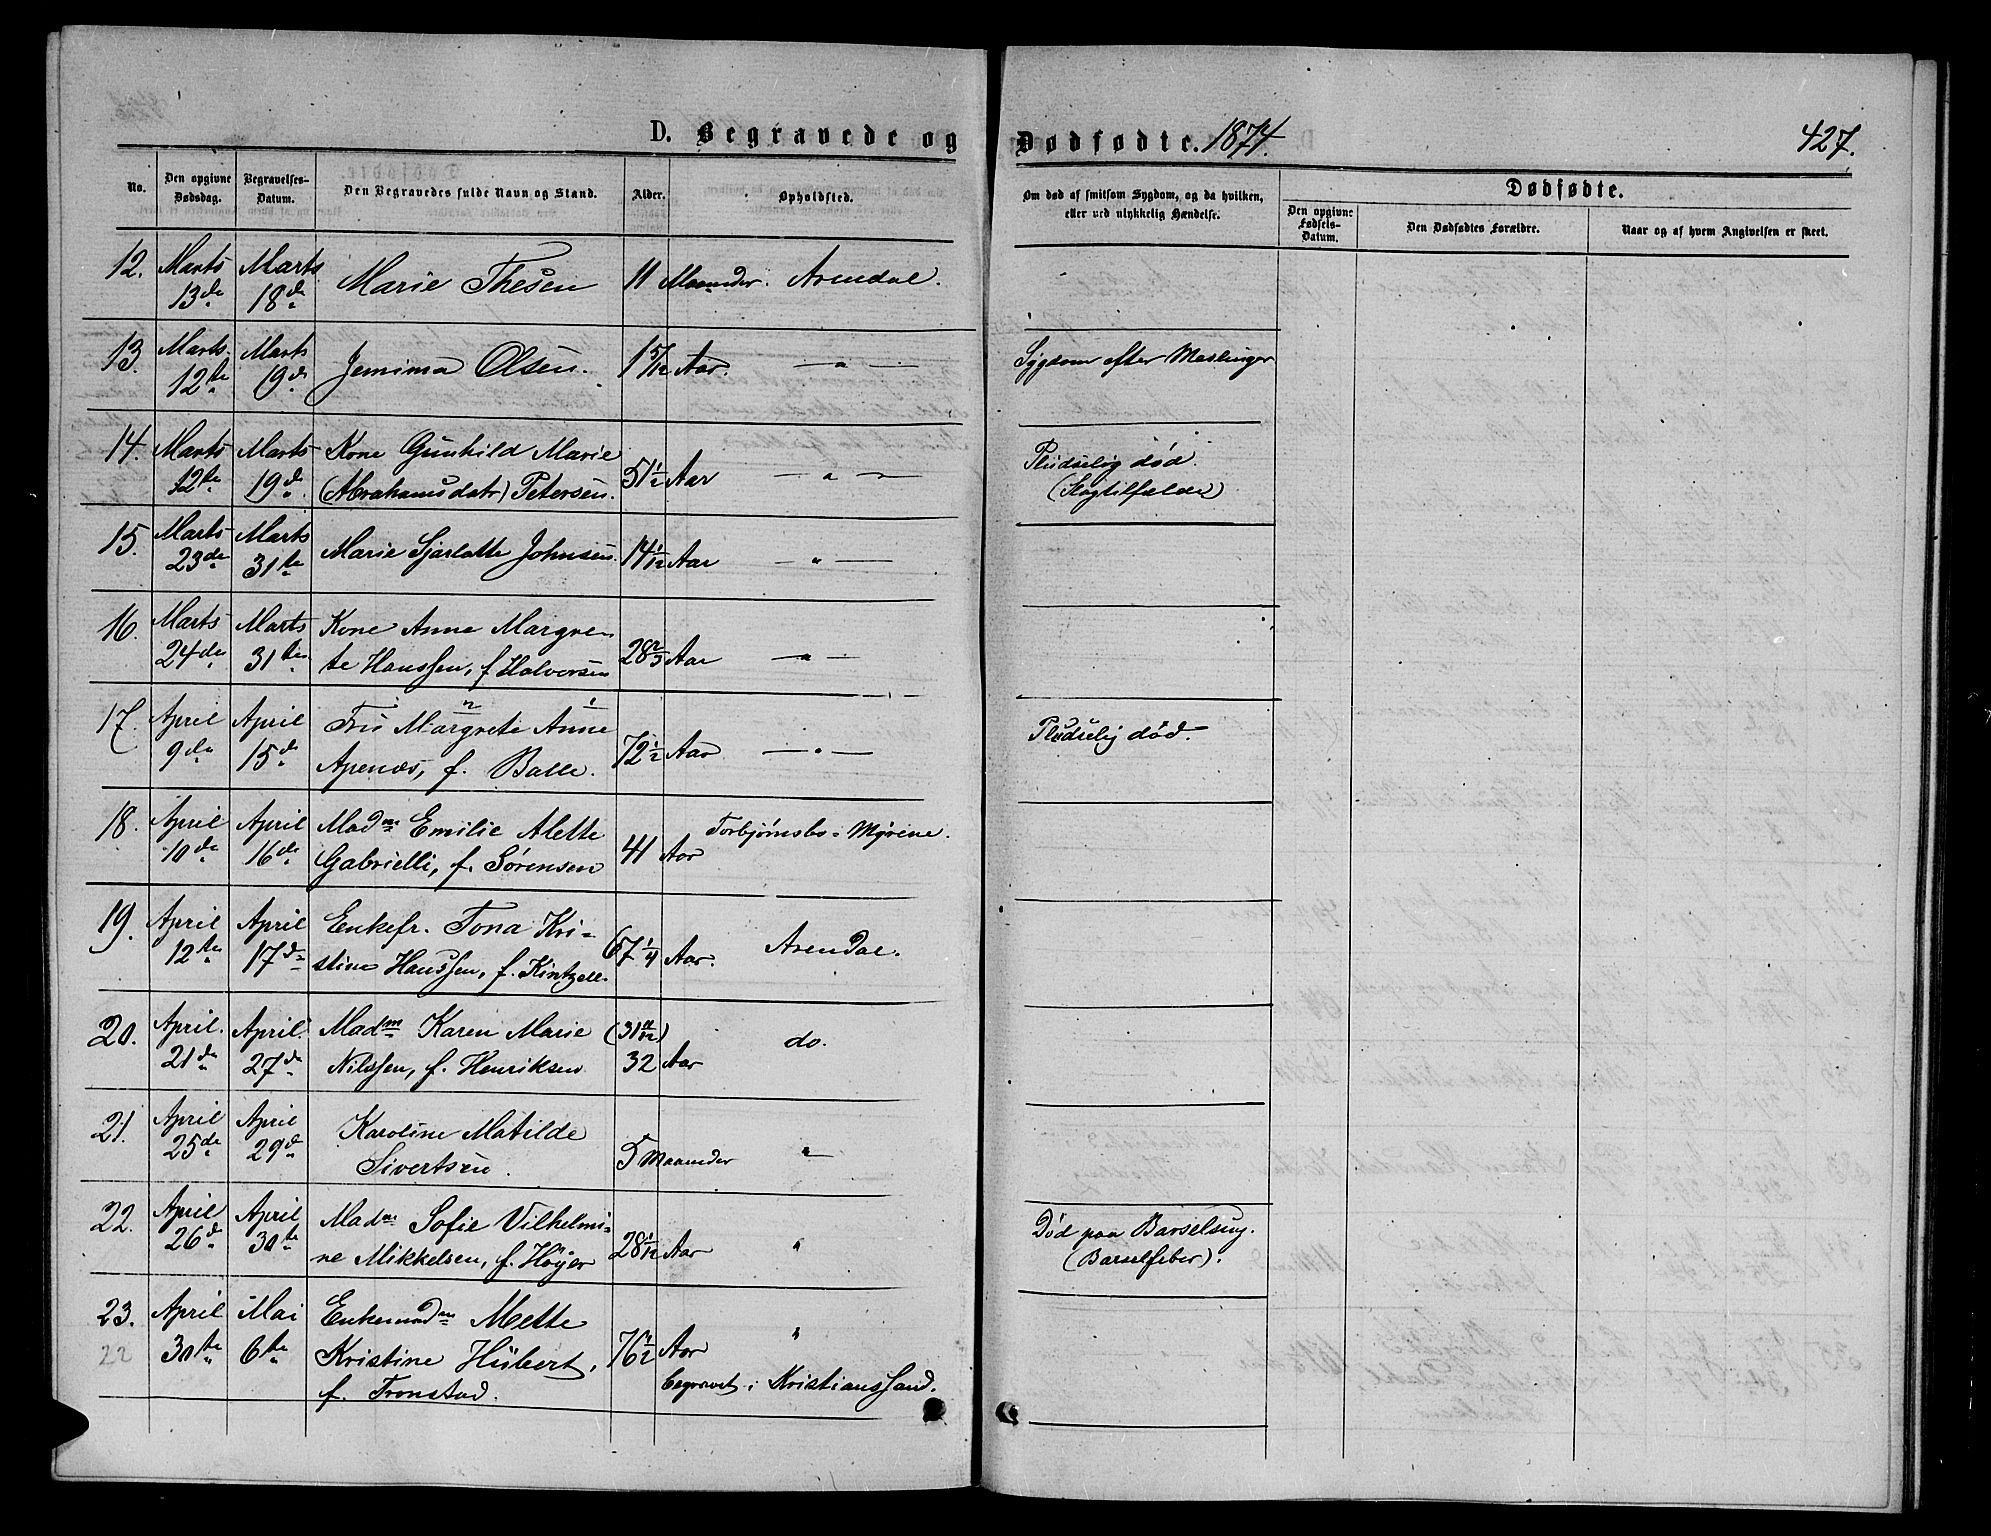 D. Begravede og Dødfødte. 1874. 427.
No.
Den opgivne Dødsdag.
Begravelses-Datum.
Den Begravedes fulde Navn og Stand.
Alder.
Opholdsted.
Om død af smitsom Sygdom, og da hvilken,
eller ved ulykkelig Hændelse.
Dødfødte.
Den opgivne Fødsels-Datum.
Den Dødfødtes Forældre.
Naar og af hvem Angivelsen er skeet.
12. Marts Marts Marie Thesen 11 Maaneder. Arendal.
13de 18de
13. Marts. Marts Jemima Olsen. 1 5/12 Aar. — " — Sygdom efter Meslinger
12te 19de
14. Marts Marts Kone Gunhild Marie Pludselig død.
12te 19de (Abrahamsdatr) Petersen. 51 1/2 Aar — " — (Slagtilfælde)
15. Marts Marts Marie Sjarlotte Johnsen. 14 1/12 Aar — " —
23de 31te
16. Marts Marts Kone Anne Margre-
24de 31te te Hanssen, f. Halvorsen 28 2/3 Aar — " —
17. April April Fru Margrete Anne Pludselig død.
2 1
9de 15de Apenæs, f. Balle. 72 1/2 Aar — " —
18. April April Madm Emilie Alette Torbjørnsbo-Myrene.
10de 16de Gabrielli, f. Sørensen 41 Aar
19. April April Enkefr. Tona Kri-
12te 17de stine Hanssen, f. Kintzell 67 1/4 Aar. Arendal.
20. April. April. Madm Karen Marie (31 11/12) do.
21de 27de Nilssen, f. Henriksen 32 Aar
21. April April Karoline Matilde
25de 29de Sivertsen. 5 Maaneder "
22. April April Madm Sofie Vilhelmi- Død paa Barselseng.
26de 30te ne Mikkelsen, f. Höyer 28 1/12 Aar " (Barselfeber).
23. April Mai Enkemadm Mette "
22 30te 6te Kristine Hübert, 76 1/2 Aar
f. Tronstad. begravet i Kristianssand.